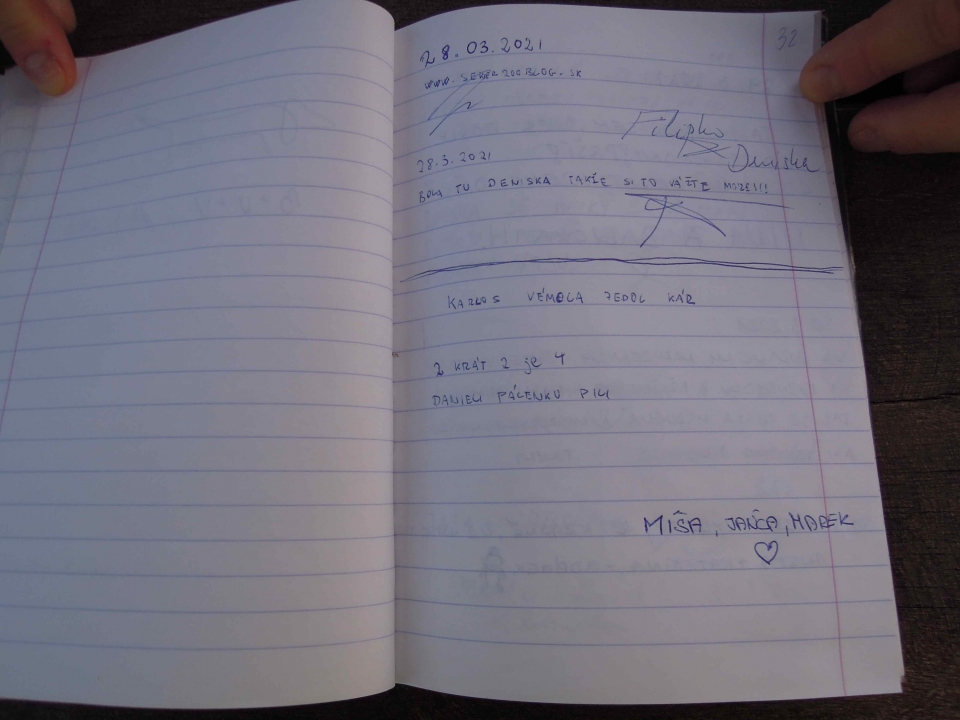 32
28.03.2021
WWW.SEKER200BLOG.SK
Filipko
Deniska
28.3.2021
BOLA TU DENISKA TAKŽE SI TO VÁŽTE MOREI!!
KARLOS VÉMOLA ZEDOL KÁR
2 KRÁT 2 je 4
DANIELI PÁLENKU PILI
MIŠA, JANČA, MAREK